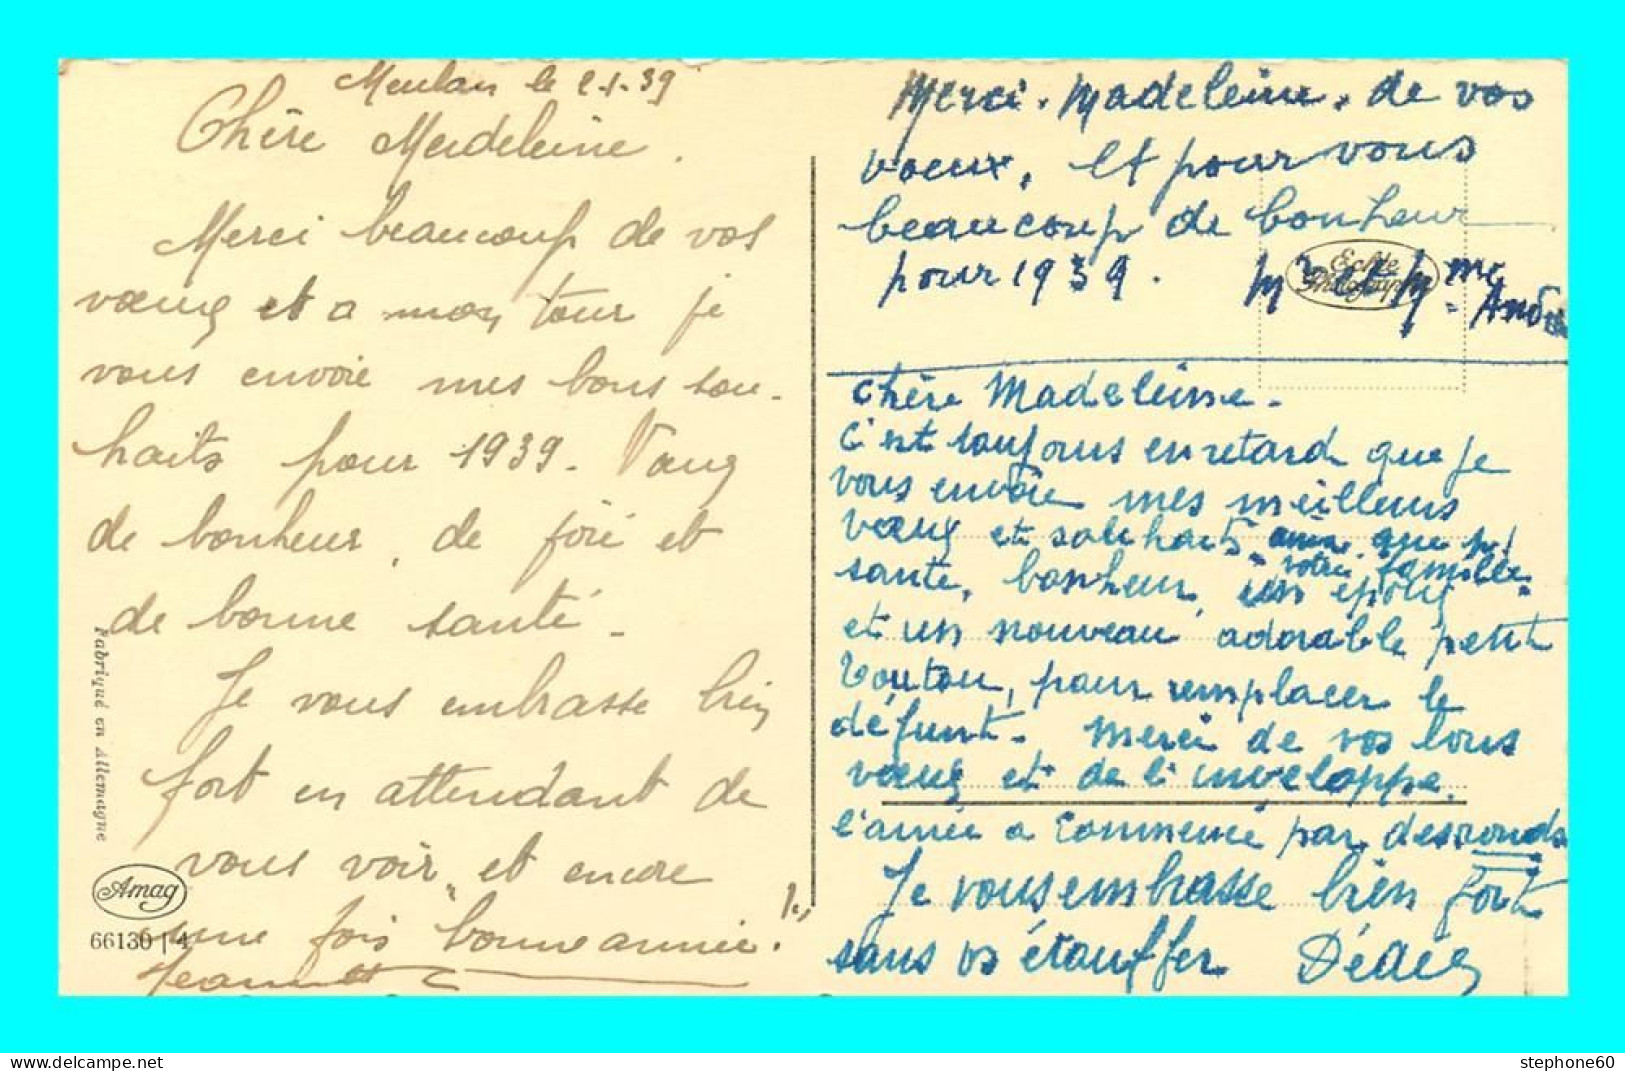 Meulan le 2-1-39
Chère Madeleine.
Merci beaucoup de vos
vœux et a mon tour je
vous envoie mes bons sou-
haits pour 1939. Vœux
de bonheur, de joie et
de bonne santé -
Je vous embrasse bien
fort en attendant de
vous voir, et encore
une fois bonne année!
Jeannette
Fabriqué en Allemagne
Amag
66130 | 4
Merci. Madeleine. de vos
voeux. Et pour vous
beaucoup de bonheur
pour 1939. Mr et Mme
André
Echte
Photographie
Chère Madeleine.
C'est toujours en retard que je
vous envoie mes meilleurs
vœux et souhaits que
votre famille
santé, bonheur, un époux
et un nouveau adorable petit
toutou, pour remplacer le
défunt. Merci de vos bons
vœux et de l'enveloppe.
l'année a commencé par des ronds
Je vous embrasse bien fort
sans vs étouffer Dédée
stephone60